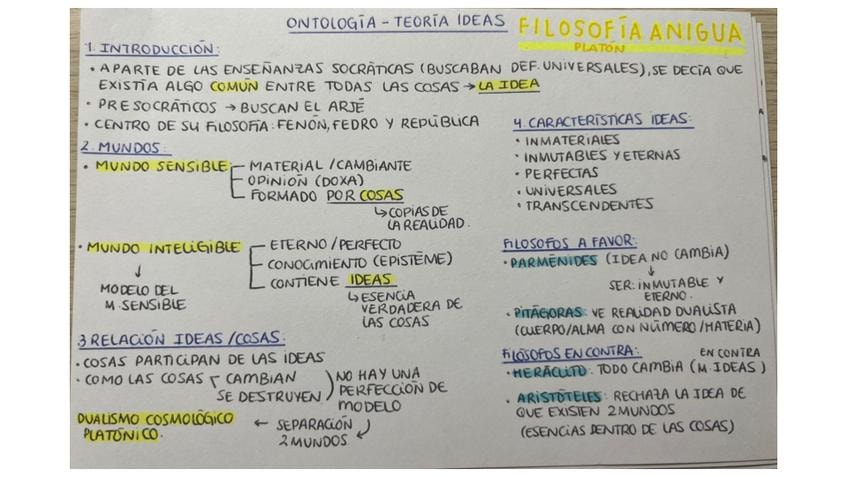 ONTOLOGÍA - TEORÍA IDEAS
FILOSOFÍA ANIGUA
PLATÓN
1. INTRODUCCIÓN:
• APARTE DE LAS ENSEÑANZAS SOCRÁTICAS (BUSCABAN DEF. UNIVERSALES), SE DECÍA QUE
EXISTÍA ALGO COMÚN ENTRE TODAS LAS COSAS → LA IDEA
• PRESOCRÁTICOS → BUSCAN EL ARJÉ
• CENTRO DE SU FILOSOFÍA: FENÓN, FEDRO Y REPÚBLICA
2. MUNDOS:
• MUNDO SENSIBLE
MATERIAL / CAMBIANTE
OPINIÓN (DOXA)
FORMADO POR COSAS
↳ COPIAS DE
LA REALIDAD.
• MUNDO INTELIGIBLE
↓
MODELO DEL
M. SENSIBLE
ETERNO / PERFECTO
CONOCIMIENTO (EPISTÉME)
CONTIENE IDEAS
↳ ESENCIA
VERDADERA DE
LAS COSAS
3 RELACIÓN IDEAS / COSAS:
• COSAS PARTICIPAN DE LAS IDEAS
• COMO LAS COSAS
CAMBIAN
SE DESTRUYEN
NO HAY UNA
PERFECCIÓN DE
MODELO
← SEPARACIÓN
2 MUNDOS
DUALISMO COSMOLÓGICO
PLATÓNICO.
4. CARACTERÍSTICAS IDEAS:
• INMATERIALES
• INMUTABLES Y ETERNAS
• PERFECTAS
• UNIVERSALES
• TRANSCENDENTES
FILOSOFOS A FAVOR:
• PARMÉNIDES (IDEA NO CAMBIA)
↓
SER: INMUTABLE Y
ETERNO.
• PITÁGORAS: VE REALIDAD DUALISTA
(CUERPO/ALMA CON NÚMERO/MATERIA)
FILÓSOFOS EN CONTRA:
• HERÁCLITO: TODO CAMBIA (M. IDEAS)
EN CONTRA
• ARISTÓTELES: RECHAZA LA IDEA DE
QUE EXISTEN 2 MUNDOS
(ESENCIAS DENTRO DE LAS COSAS)